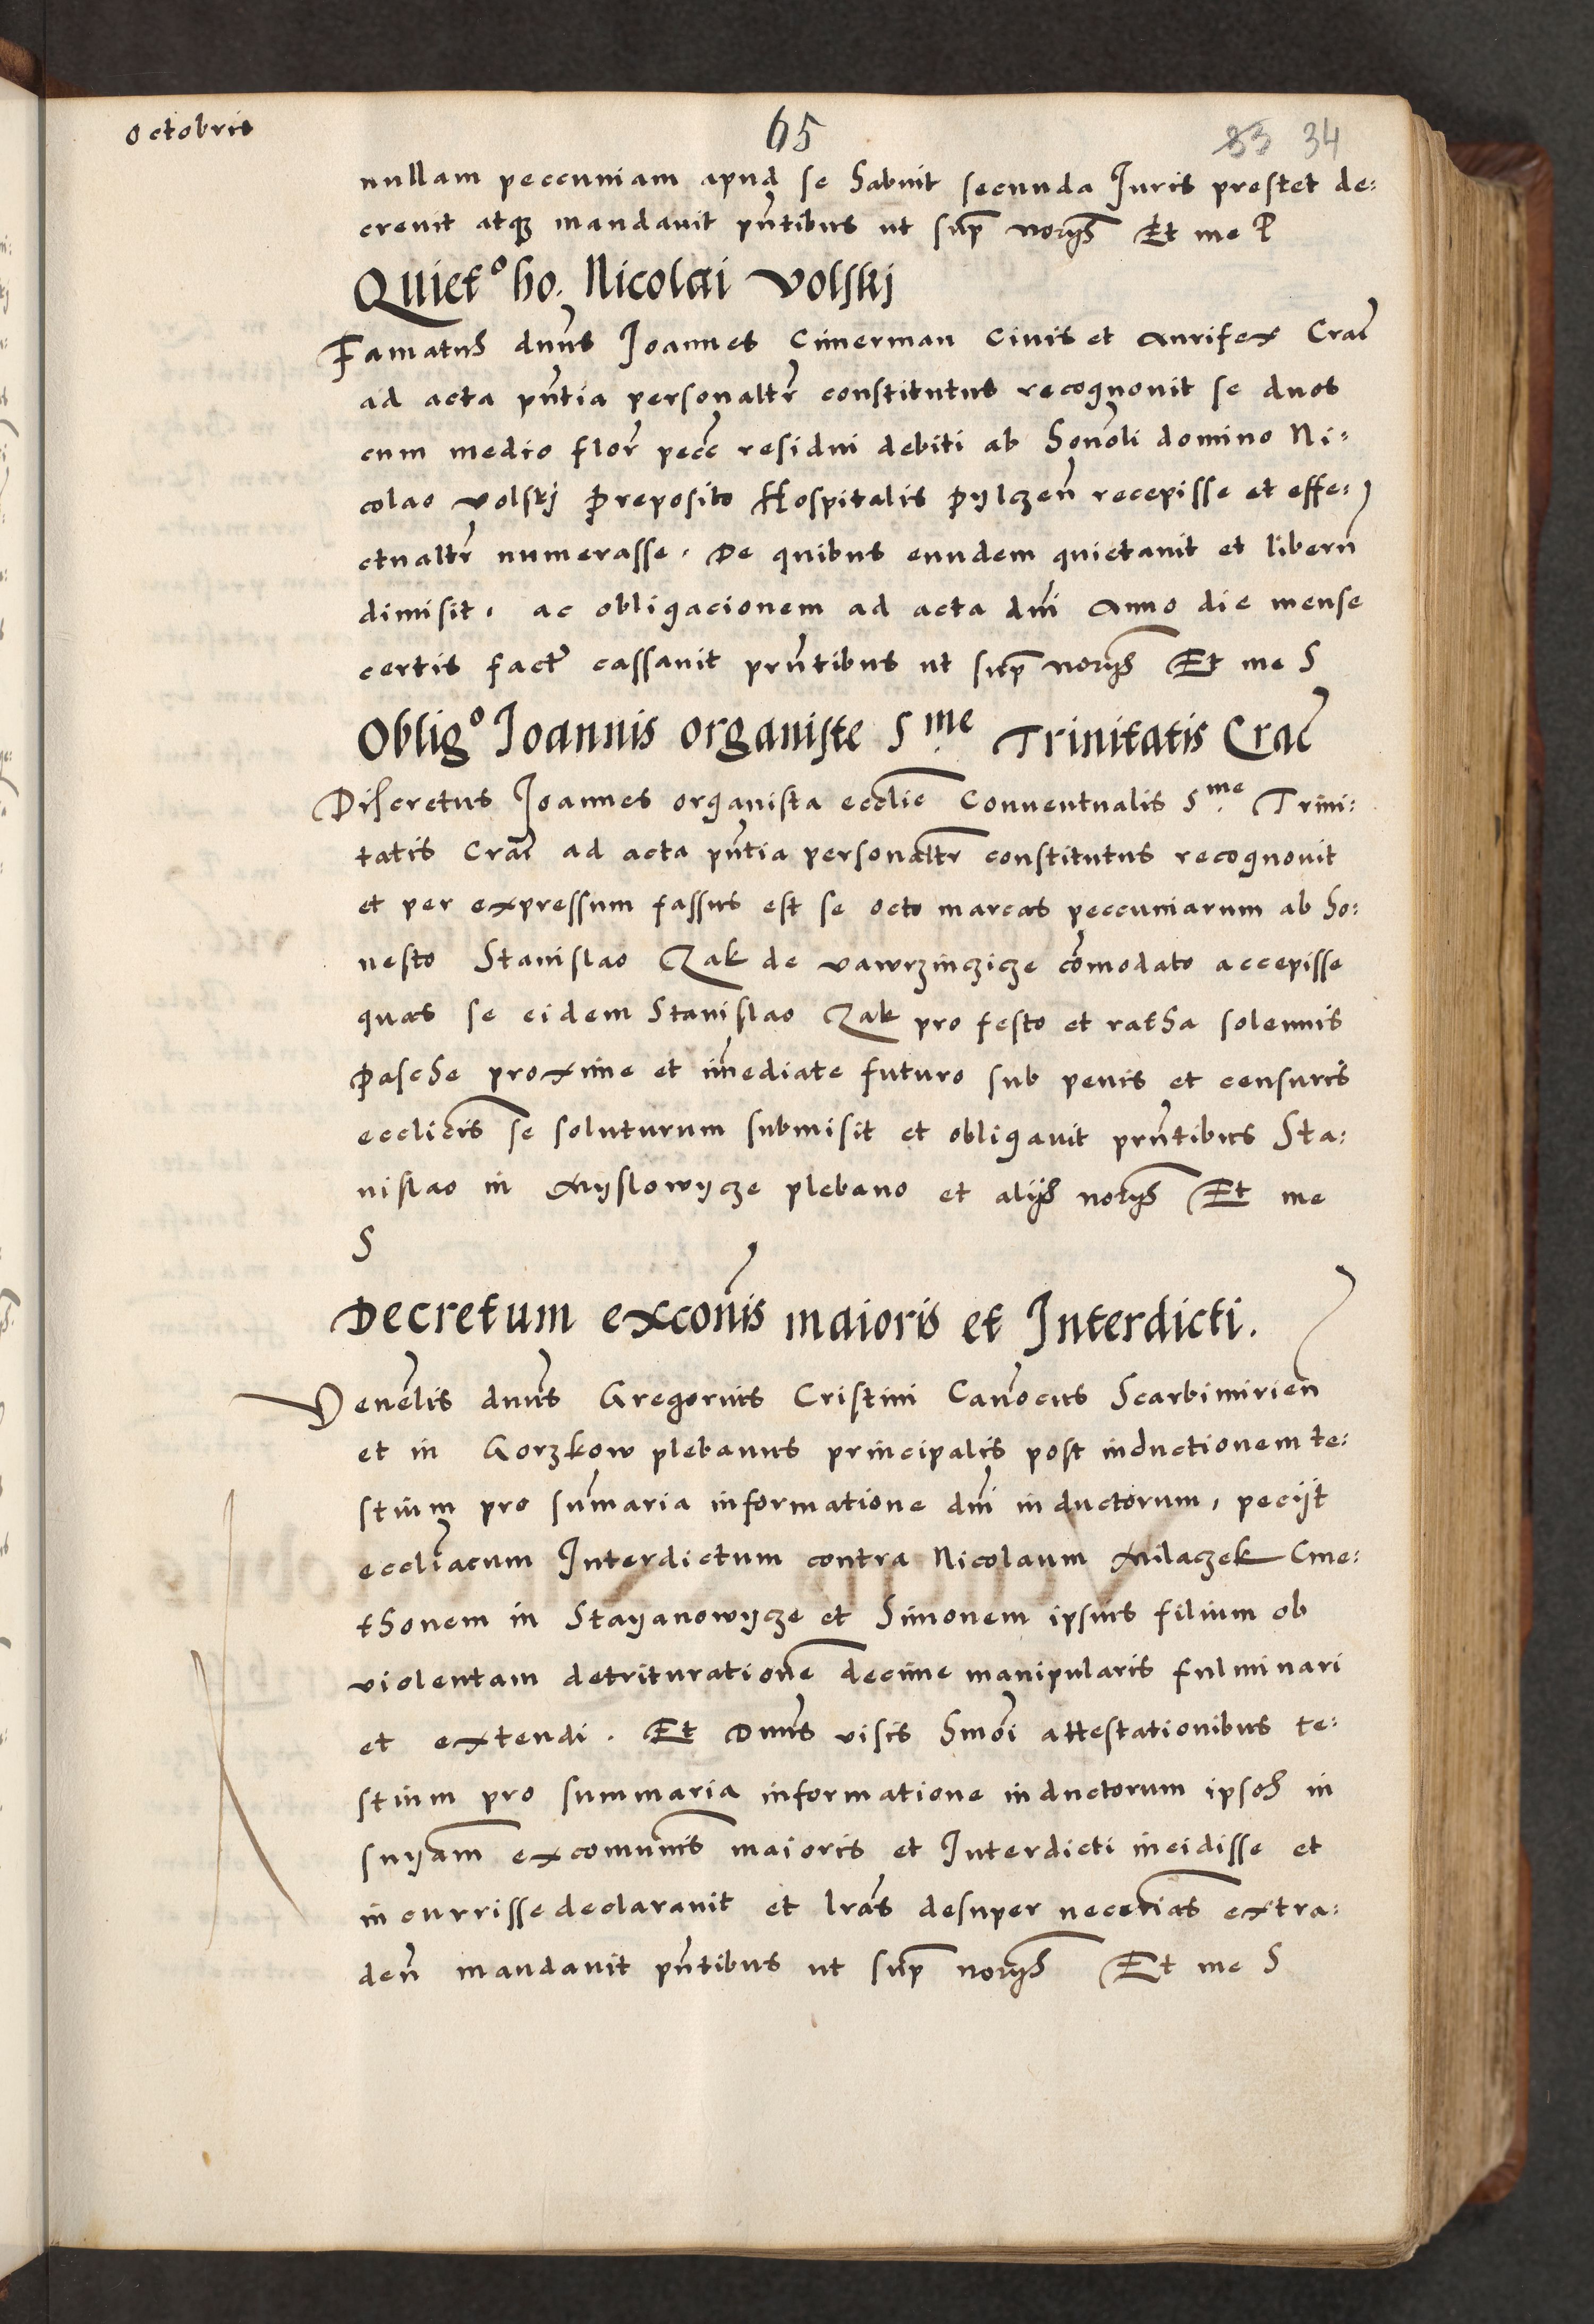 octobris
65
83 34
nullam peccuniam apud se habuit secunda Iuris prestet de:
crevit atq3 mandavit pn̄tibus ut sup̄ Et me P
Quiet.º ho. Nicolai Volskj
Famatus dnūs Joannes Cimerman Civis et Aurifex Crac̄
ad acta pn̄tia personaltr̄ constitutus recognovit se duos
cum medio flor̄ pecc̄ residui debiti ab honōli domino Ni:
colao Volskj Preposito Hospitalis Pylczen̄ recepisse et effe:
ctualtr̄ numerasse. De quibus eundem quietavit et liberū
dimisit, ac obligacionem ad acta dnī Anno die mense
certis fact̄ cassavit prn̄tibus ut sup̄ Et me S
Oblig.º Joannis organiste S.me Trinitatis Crac̄
Discretus Joannes organista ecclīe Conventualis S.me Trini:
tatis Crac̄ ad acta pn̄tia personaltr̄ constitutus recognovit
et per expressum fassus est se octo marcas peccuniarum ab ho:
nesto Stanislao Czak de vawrzinczicze cōmodato accepisse
quas se eidem Stanislao Czak pro festo et ratha solennis
Pasche proxime et im̄ediate futuro sub penis et censuris
ecclicīs se soluturum submisit et obligavit prn̄tibus Sta:
nislao in Myslowycze plebano et alijs Et me
S
Decretum exconīs maioris et Interdicti.
Venēlis dnūs Gregorius Cristini Canōcus Scarbimirien̄
et in Gorzkow plebanus principalis post inductionem te:
stium pro sum̄aria informatione dnī inductorum, pecijt
ecclīacum Interdictum contra Nicolaum Milaczek Cme:
thonem in Stayanowycze et Simonem ipsius filium ob
violentam detriturationē decime manipularis fulminari
et extendi. Et Dnūs visis hmōi attestationibus te:
stium pro summaria informatione inductorum ipsos in
snyām excomunīs maioris et Interdicti incidisse et
incurrisse declaravit et lrās desuper necerīas extra:
den̄ mandavit pn̄tibus ut sup̄ Et me S